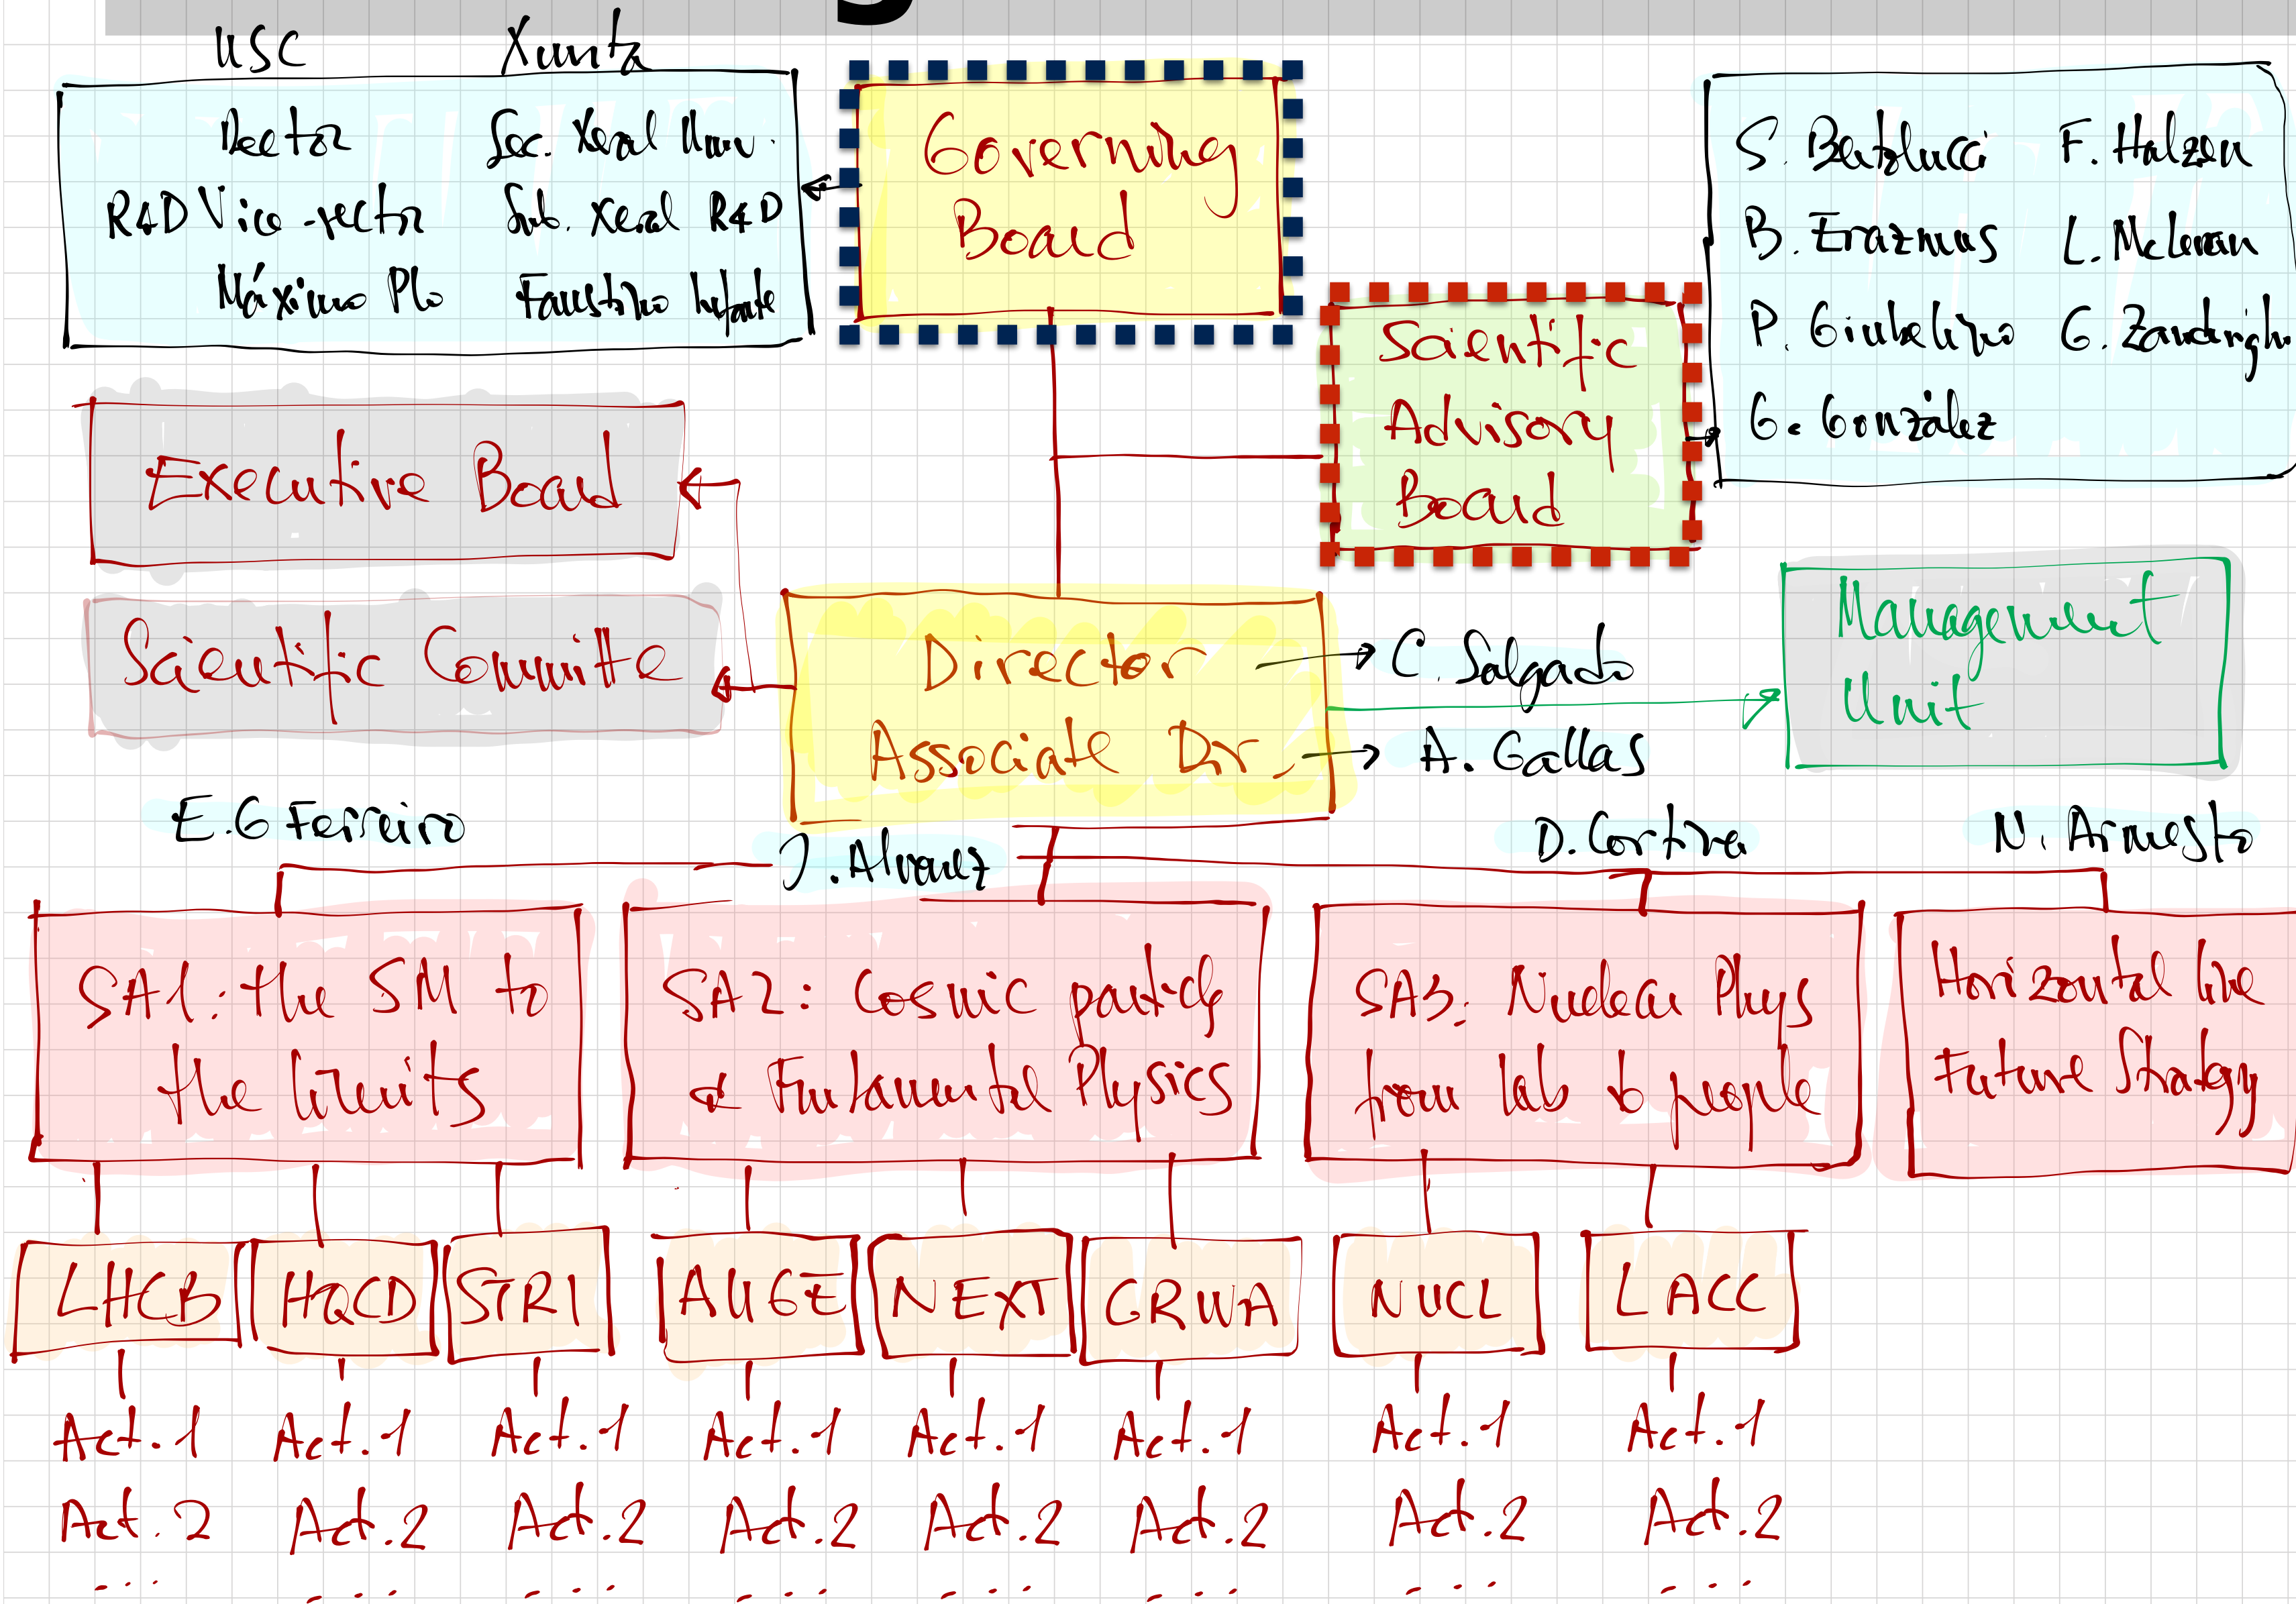 USC Xunta
Rector Sec. Xeral Univ.
R&D Vice-rector Sub. Xeral R&D
Máximo Plo Faustino Infante
Governing
Board
S. Bertolucci F. Halzen
B. Erazmus L. McLerran
P. Giubellino G. Zanderigh
G. González
Scientific
Advisory
Board
Executive Board
Scientific Committe
Director
Associate Dir.
C. Salgado
A. Gallas
Management
Unit
E.G Ferreiro
J. Alvarez
D. Cortina
N. Armesto
SA1: the SM to
the limits
SA2: Cosmic particle
& Fundamental Physics
SA3: Nuclear Phys
from lab to people
Horizontal line
Future Strategy
LHCB HQCD STRI AUGE NEXT GRWA NUCL LACC
Act.1 Act.1 Act.1 Act.1 Act.1 Act.1 Act.1 Act.1
Act.2 Act.2 Act.2 Act.2 Act.2 Act.2 Act.2 Act.2
... ... ... ... ... ... ... ...